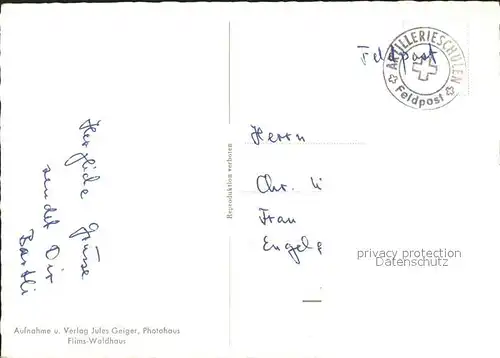 Feldpost
ARTILLERIESCHULEN
Feldpost
Herzliche Grüsse
sendet Dir
Bartli
Reproduktion verboten
Herrn
Chr.
Frau
privacy protection
Datenschutz
Aufnahme u. Verlag Jules Geiger, Photohaus
Flims-Waldhaus